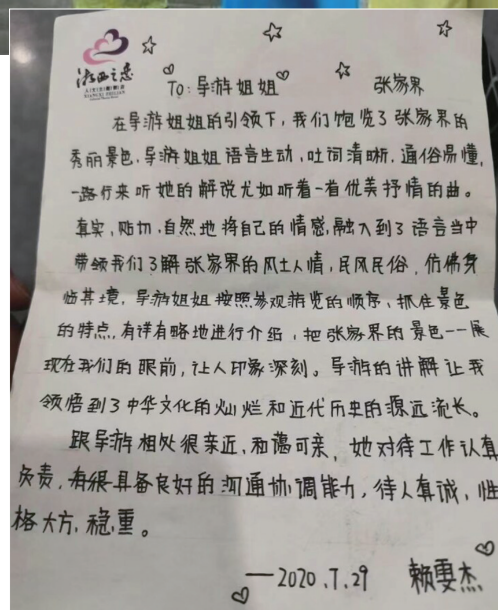 湘西之恋
To: 导游姐姐
张家界
在导游姐姐的引领下，我们饱览了张家界的
秀丽景色，导游姐姐语音生动，吐词清晰，通俗易懂，
一路行来听她的解说尤如听着一首优美抒情的曲。
真实，贴切，自然地将自己的情感，融入到了语言当中
带领我们了解张家界的风土人情，民风民俗，仿佛身
临其境，导游姐姐按照参观游览的顺序，抓住景色
的特点，有详有略地进行介绍，把张家界的景色一一展
现在我们的眼前，让人印象深刻。导游的讲解让我
领悟到了中华文化的灿烂和近代历史的源远流长。
跟导游相处很亲近，和蔼可亲，她对待工作认真
负责，具备良好的沟通协调能力，待人真诚，性
格大方，稳重。
—2020.7.29 赖雯杰